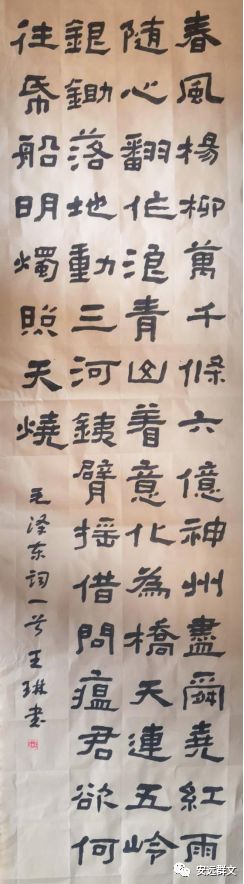 春風楊柳萬千條六億神州盡舜堯紅雨
随心翻作浪青山着意化為橋天連五岭
銀鋤落地動三河銕臂摇借問瘟君欲何
往帋船明燭照天燒
毛泽东词一首 王琳书
安远群文